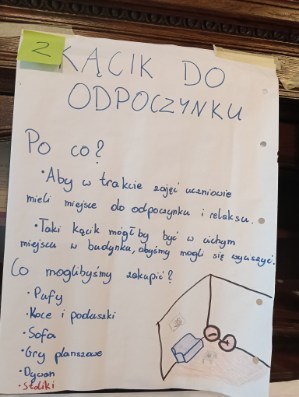 2
KĄCIK DO
ODPOCZYNKU
Po co?
• Aby w trakcie zajęć uczniowie
mieli miejsce do odpoczynku i relaksu.
• Taki kącik mógłby być w cichym
miejscu w budynku, abyśmy mogli się wyciszyć.
Co moglibyśmy zakupić?
• Pufy
• Koce i poduszki
• Sofa
• Gry planszowe
• Dywan
• Stoliki